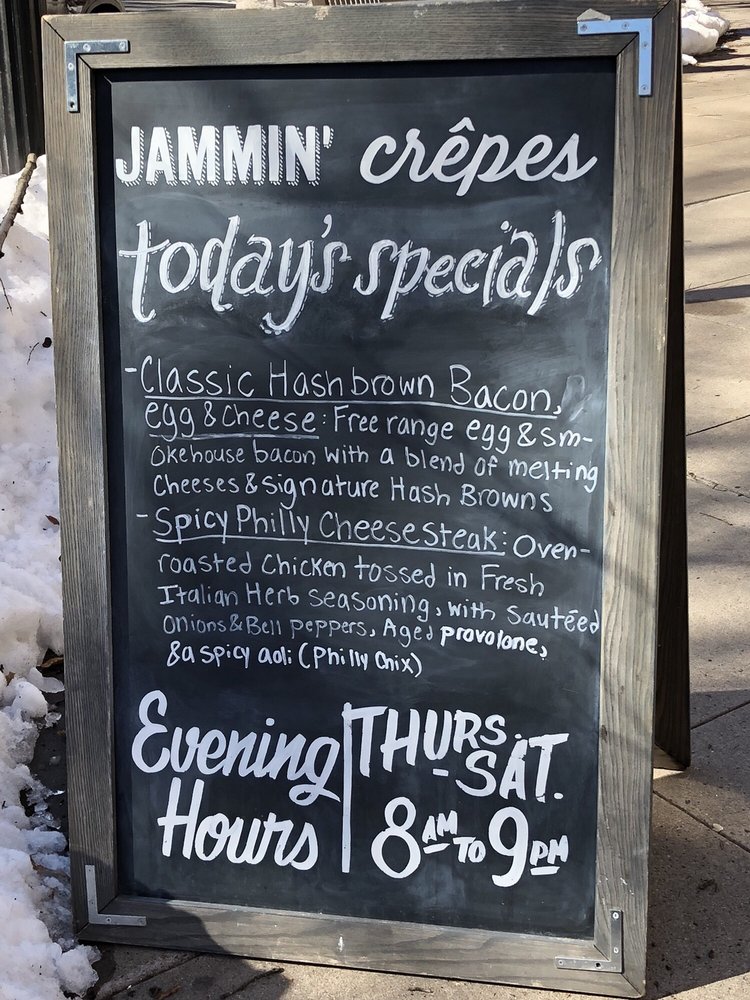 JAMMIN' crêpes
today's specials
-Classic Hashbrown Bacon,
egg & cheese: Free range egg & sm-
okehouse bacon with a blend of melting
Cheeses & signature Hash Browns
-Spicy Philly Cheesesteak: Oven-
roasted Chicken tossed in Fresh
Italian Herb seasoning, with sautéed
Onions & Bell peppers, Aged provolone,
& a spicy aoli (Philly Chix)
Evening Hours
THURS.
-SAT.
8 AM TO 9 PM